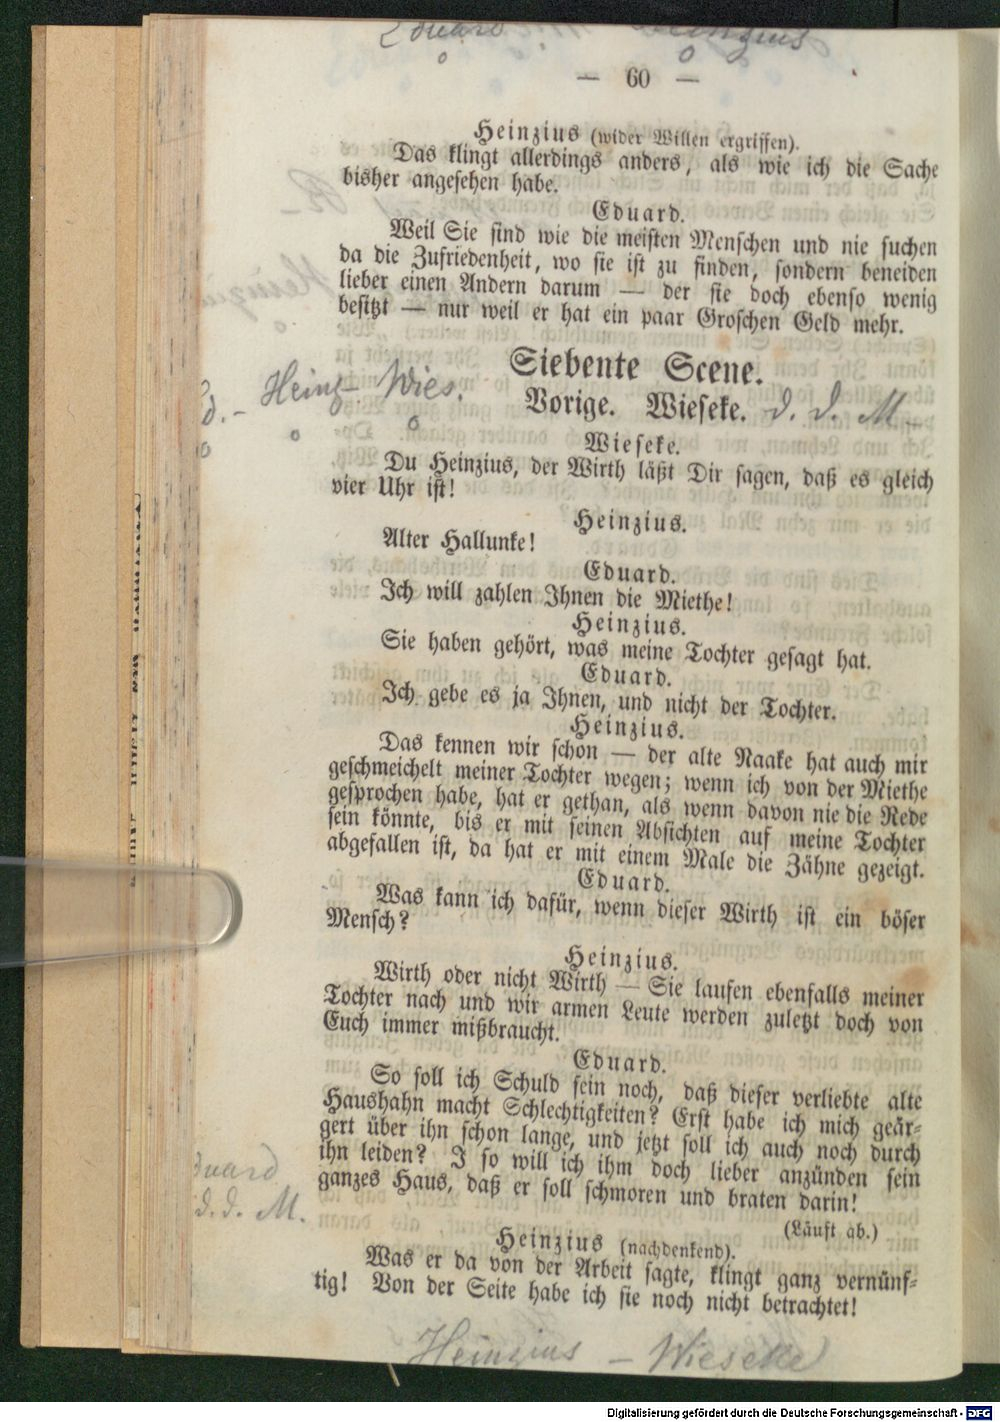 Eduard Heinzius
— 60 —
Heinzius (wider Willen ergriffen).
Das klingt allerdings anders, als wie ich die Sache
bisher angesehen habe.
Eduard.
Weil Sie sind wie die meisten Menschen und nie suchen
da die Zufriedenheit, wo sie ist zu finden, sondern beneiden
lieber einen Andern darum — der sie doch ebenso wenig
besitzt — nur weil er hat ein paar Groschen Geld mehr.
Siebente Scene.
d. – Heinz – Wies.
Vorige. Wieseke. d. d. M –
Wieseke.
Du Heinzius, der Wirth läßt Dir sagen, daß es gleich
vier Uhr ist!
Heinzius.
Alter Hallunke!
Eduard.
Ich will zahlen Ihnen die Miethe!
Heinzius.
Sie haben gehört, was meine Tochter gesagt hat.
Eduard.
Ich gebe es ja Ihnen, und nicht der Tochter.
Heinzius.
Das kennen wir schon — der alte Naake hat auch mir
geschmeichelt meiner Tochter wegen; wenn ich von der Miethe
gesprochen habe, hat er gethan, als wenn davon nie die Rede
sein könnte, bis er mit seinen Absichten auf meine Tochter
abgefallen ist, da hat er mit einem Male die Zähne gezeigt.
Eduard.
Was kann ich dafür, wenn dieser Wirth ist ein böser
Mensch?
Heinzius.
Wirth oder nicht Wirth — Sie laufen ebenfalls meiner
Tochter nach und wir armen Leute werden zuletzt doch von
Euch immer mißbraucht.
Eduard.
So soll ich Schuld sein noch, daß dieser verliebte alte
Haushahn macht Schlechtigkeiten? Erst habe ich mich geär-
gert über ihn schon lange, und jetzt soll ich auch noch durch
ihn leiden? I so will ich ihm doch lieber anzünden sein
ganzes Haus, daß er soll schmoren und braten darin!
duard
d. d. M.
(Läuft ab.)
Heinzius (nachdenkend).
Was er da von der Arbeit sagte, klingt ganz vernünf-
tig! Von der Seite habe ich sie noch nicht betrachtet!
Heinzius – Wieseke
Digitalisierung gefördert durch die Deutsche Forschungsgemeinschaft - DFG